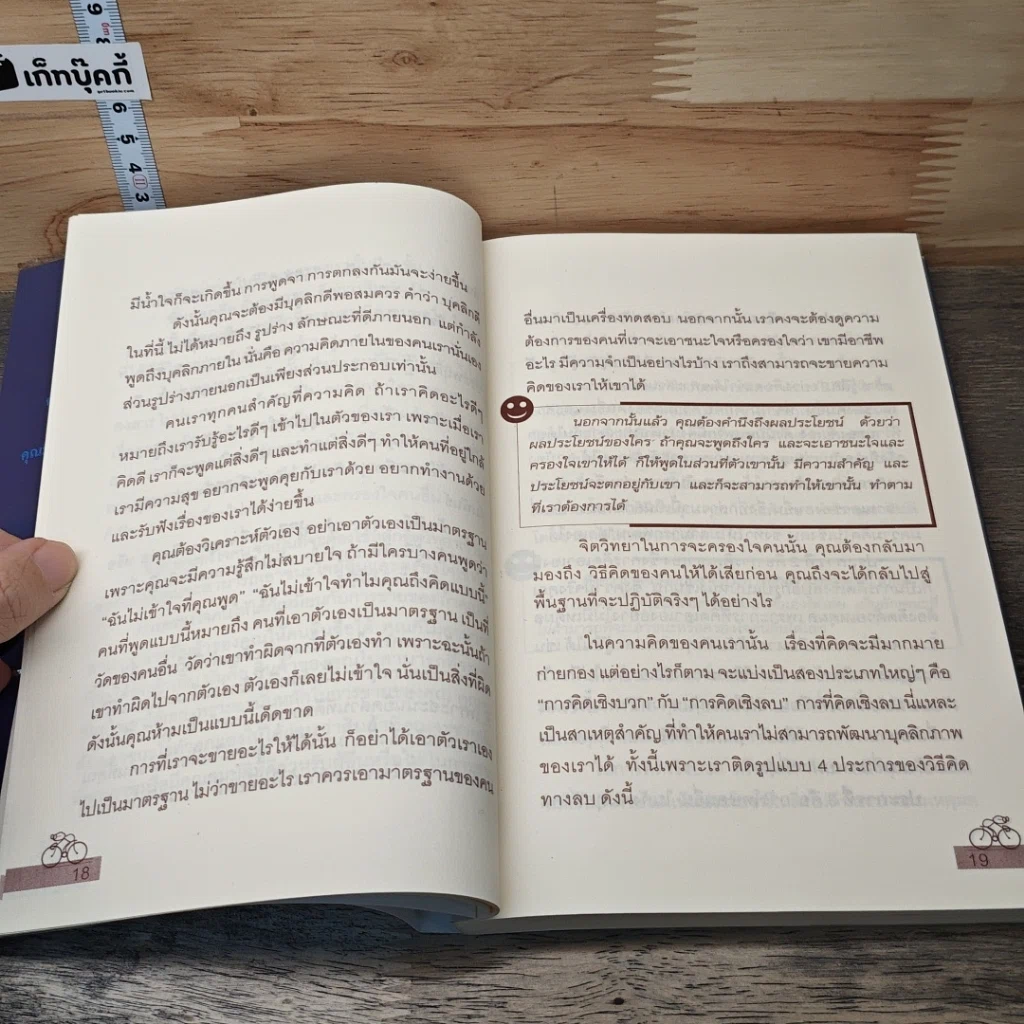 เก็ทบุ๊คกี้
9
6
5
4
3
มีน้ำใจก็จะเกิดขึ้น การพูดจา การตกลงกันมันจะง่ายขึ้น
ดังนั้นคุณจะต้องมีบุคลิกดีพอสมควร คำว่า บุคลิกดี
ในที่นี้ ไม่ได้หมายถึง รูปร่าง ลักษณะที่ดีภายนอก แต่กำลัง
พูดถึงบุคลิกภายใน นั่นคือ ความคิดภายในของคนเรานั่นเอง
ส่วนรูปร่างภายนอกเป็นเพียงส่วนประกอบเท่านั้น
คนเราทุกคนสำคัญที่ความคิด ถ้าเราคิดอะไรดีๆ
หมายถึงเรารับรู้อะไรดีๆ เข้าไปในตัวของเรา เพราะเมื่อเรา
คิดดี เราก็จะพูดแต่สิ่งดีๆ และทำแต่สิ่งดีๆ ทำให้คนที่อยู่ใกล้
เรามีความสุข อยากจะพูดคุยกับเราด้วย อยากทำงานด้วย
และรับฟังเรื่องของเราได้ง่ายขึ้น
คุณต้องวิเคราะห์ตัวเอง อย่าเอาตัวเองเป็นมาตรฐาน
เพราะคุณจะมีความรู้สึกไม่สบายใจ ถ้ามีใครบางคนพูดว่า
"ฉันไม่เข้าใจที่คุณพูด" "ฉันไม่เข้าใจทำไมคุณถึงคิดแบบนี้"
คนที่พูดแบบนี้หมายถึง คนที่เอาตัวเองเป็นมาตรฐาน เป็นที่
วัดของคนอื่น วัดว่าเขาทำผิดจากที่ตัวเองทำ เพราะฉะนั้นถ้า
เขาทำผิดไปจากตัวเอง ตัวเองก็เลยไม่เข้าใจ นั่นเป็นสิ่งที่ผิด
ดังนั้นคุณห้ามเป็นแบบนี้เด็ดขาด
การที่เราจะขายอะไรให้ได้นั้น ก็อย่าได้เอาตัวเราเอง
ไปเป็นมาตรฐาน ไม่ว่าขายอะไร เราควรเอามาตรฐานของคน
18
อื่นมาเป็นเครื่องทดสอบ นอกจากนั้น เราคงจะต้องดูความ
ต้องการของคนที่เราจะเอาชนะใจหรือครองใจว่า เขามีอาชีพ
อะไร มีความจำเป็นอย่างไรบ้าง เราถึงสามารถจะขายความ
คิดของเราให้เขาได้
นอกจากนั้นแล้ว คุณต้องคำนึงถึงผลประโยชน์ ด้วยว่า
ผลประโยชน์ของใคร ถ้าคุณจะพูดถึงใคร และจะเอาชนะใจและ
ครองใจเข่าให้ได้ ก็ให้พูดในส่วนที่ตัวเขานั้น มีความสำคัญ และ
ประโยชน์จะตกอยู่กับเขา และก็จะสามารถทำให้เขานั้น ทำตาม
ที่เราต้องการได้
จิตวิทยาในการจะครองใจคนนั้น คุณต้องกลับมา
มองถึง วิธีคิดของคนให้ได้เสียก่อน คุณถึงจะได้กลับไปสู่
พื้นฐานที่จะปฏิบัติจริงๆ ได้อย่างไร
ในความคิดของคนเรานั้น เรื่องที่คิดจะมีมากมาย
ก่ายกอง แต่อย่างไรก็ตาม จะแบ่งเป็นสองประเภทใหญ่ๆ คือ
"การคิดเชิงบวก" กับ "การคิดเชิงลบ" การที่คิดเชิงลบ นี่แหละ
เป็นสาเหตุสำคัญ ที่ทำให้คนเราไม่สามารถพัฒนาบุคลิกภาพ
ของเราได้ ทั้งนี้เพราะเราติดรูปแบบ 4 ประการของวิธีคิด
ทางลบ ดังนี้
19